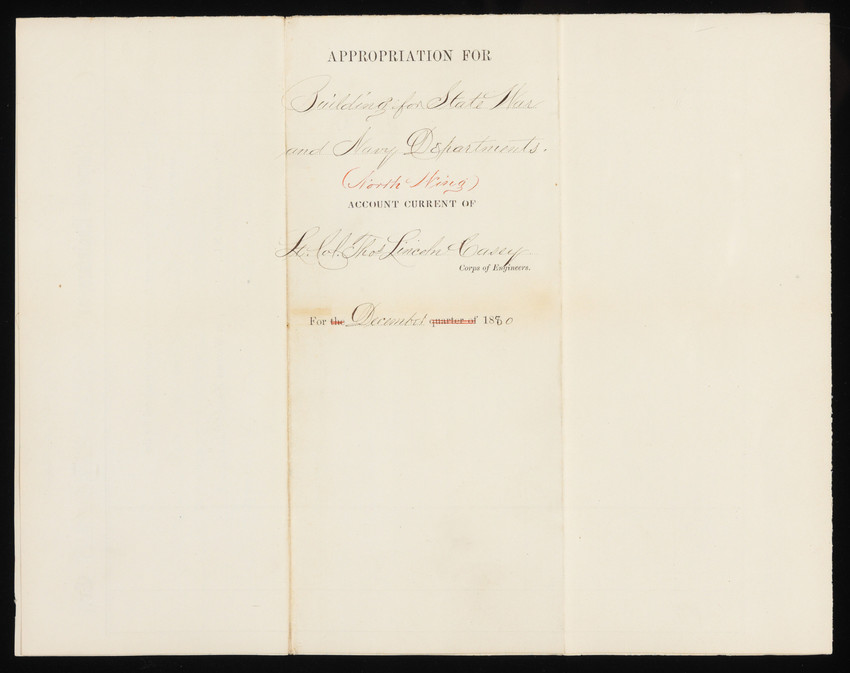 APPROPRIATION FOR
Building for State War
and Navy Departments.
(North Wing)
ACCOUNT CURRENT OF
Lt. Col. Thos Lincoln Casey
Corps of Engineers.
For the December quarter of 1880